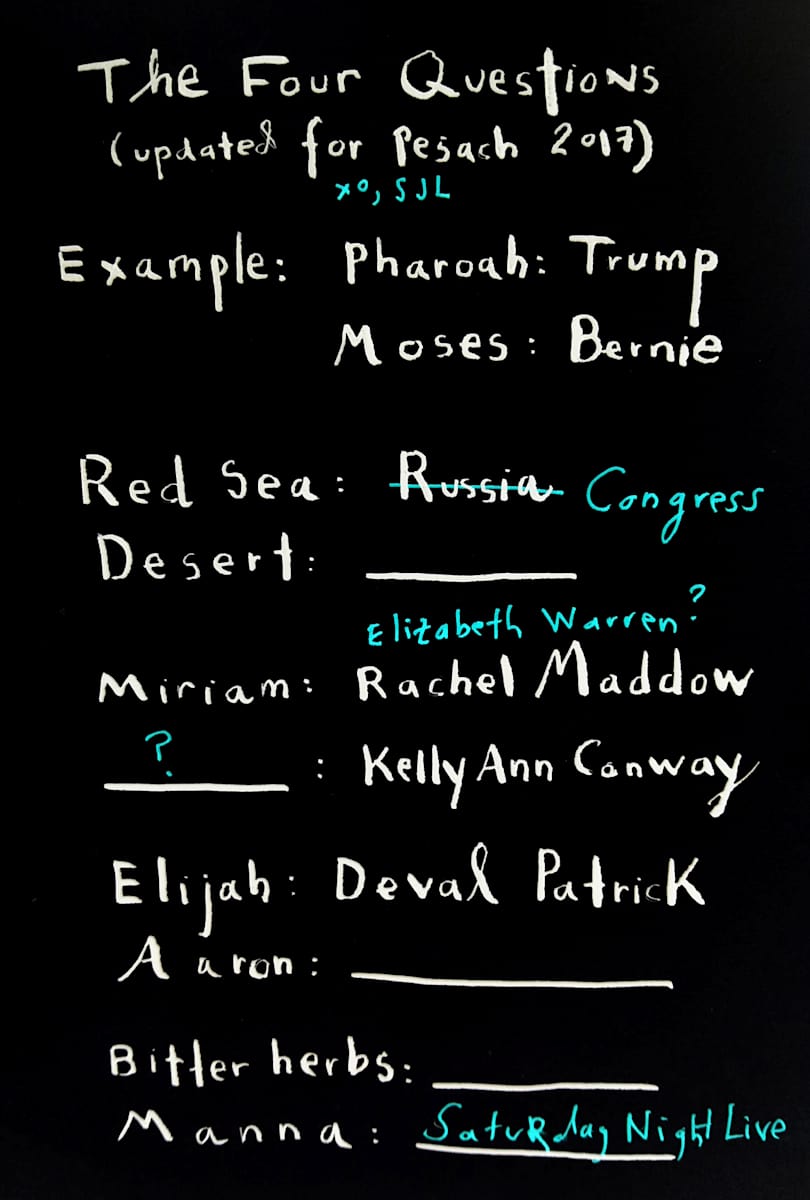 The Four Questions
(updated for Pesach 2017)
xo, SJL
Example: Pharoah: Trump
Moses: Bernie
Red Sea: Russia Congress
Desert: ________
Elizabeth Warren?
Miriam: Rachel Maddow
? : KellyAnn Conway
Elijah: Deval Patrick
Aaron: ________
Bitter herbs: ________
Manna: Saturday Night Live